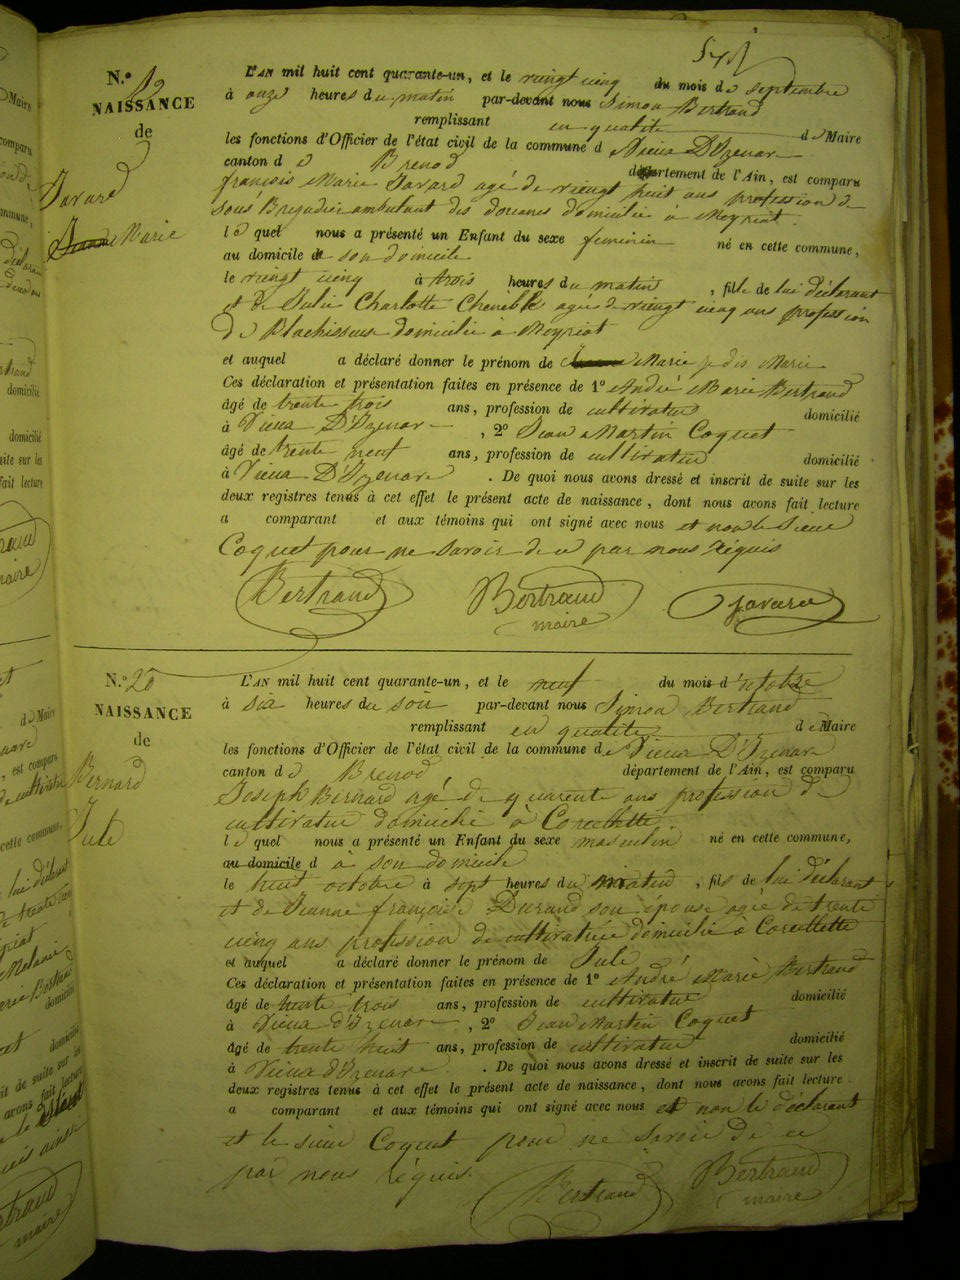 N.o 19
NAISSANCE
de
Javard
Marie
L'AN mil huit cent quarante-un, et le viengt cinq du mois de septembre
à onze heures du matin par-devant nous Simon Bertrand
remplissant en qualité de Maire
les fonctions d'Officier de l'état civil de la commune d Vieux D'Izenave
canton d e Brenod département de l'Ain, est comparu
françois Marie Javard agé de viengt huit ans profession de
sous Brigadier ambulant des douanes domicilié à Meyriat
le quel nous a présenté un Enfant du sexe feminin né en cette commune,
au domicile de son domicile
le viengt cinq à trois heures du matin, fille de lui déclarant
et de Julie Charlotte agée de viengt cinq ans profession
De domicilié à Meyriat
et auquel a déclaré donner le prénom de Marie je dis Marie
Ces déclaration et présentation faites en présence de 1o André Marie Bertrand
âgé de trente trois ans, profession de cultivateur domicilié
à Vieux D'Izenave, 2o Jean Martin Coquet
âgé de trente neuf ans, profession de cultivateur domicilié
à Vieux D'Izenave. De quoi nous avons dressé et inscrit de suite sur les
deux registres tenus à cet effet le présent acte de naissance, dont nous avons fait lecture
a comparant et aux témoins qui ont signé avec nous et non le Sieur
Coquet pour ne savoir de ce par nous réquis
Bertrand Bertrand maire Javard
N.o 20
NAISSANCE
de
Bernard
Jule
L'AN mil huit cent quarante-un, et le neuf du mois d'octobre
à six heures du soir par-devant nous Simon Bertrand
remplissant en qualité de Maire
les fonctions d'Officier de l'état civil de la commune de Vieux D'Izenave
canton d e Brenod département de l'Ain, est comparu
Joseph Bernard agé de quarente ans profession de
cultivateur domicilié à Corcelette
le quel nous a présenté un Enfant du sexe masculin né en cette commune,
au domicile d à son domicile
le huit octobre à sept heures du matin, fils de lui déclarant
et de Jeanne françoise Durand son épouse agée de trente
cinq ans profession de cultivatrice domicilié à Corcellette
et auquel a déclaré donner le prénom de Jule
Ces déclaration et présentation faites en présence de 1o André Marie Bertrand
âgé de trente trois ans, profession de cultivateur domicilié
à Vieux d'Izenave, 2o Jean Martin Coquet
âgé de trente huit ans, profession de cultivateur domicilié
à Vieux d'Izenave. De quoi nous avons dressé et inscrit de suite sur les
deux registres tenus à cet effet le présent acte de naissance, dont nous avons fait lecture
a comparant et aux témoins qui ont signé avec nous et non le déclarant
et le sieur Coquet pour ne savoir de ce
par nous réquis.
Bertrand Bertrand maire